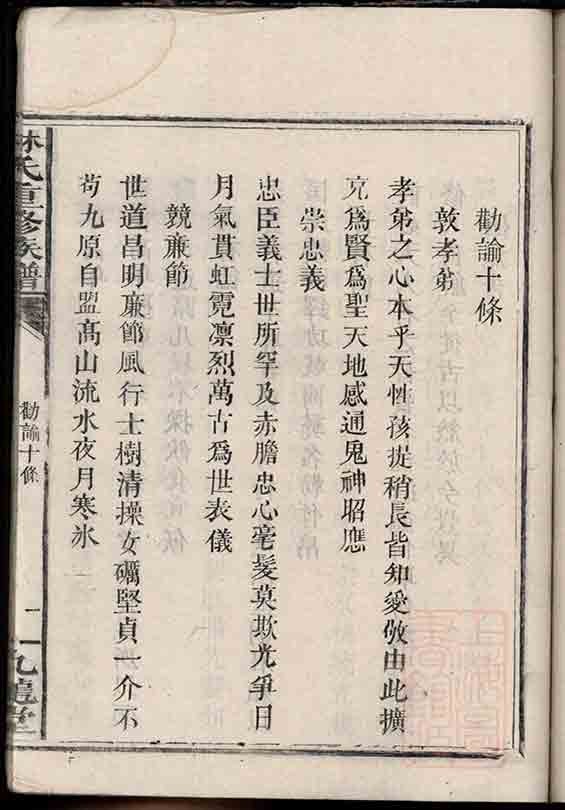 勸諭十條
敦孝弟
孝弟之心本乎天性孩提稍長皆知愛敬由此擴
充爲賢爲聖天地感通鬼神昭應
崇忠義
忠臣義士世所罕及赤膽忠心毫髮莫欺光爭日
月氣貫虹霓凛烈萬古爲世表儀
競亷節
世道昌明亷節風行士樹清操女礪堅貞一介不
苟九原自盟髙山流水夜月寒氷
林氏重修族譜
勸諭十條
九龍堂